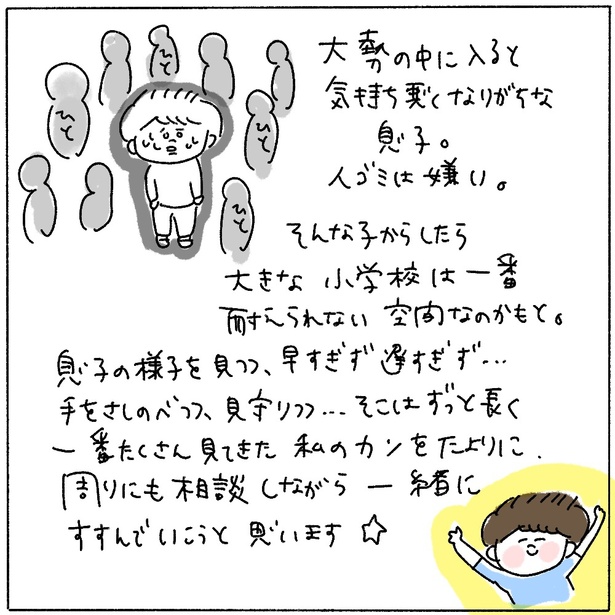 ひと
ひと
ひと
ひと
大勢の中に入ると
気持ち悪くなりがちな
息子。
人ゴミは嫌い。
そんな子からしたら
大きな 小学校は一番
耐えられない 空間なのかもと。
息子の様子を見つつ、早すぎず遅すぎず…
手をさしのべつつ、見守りつつ…そこはずっと長く
一番たくさん見てきた 私のカンをたよりに、
周りにも相談しながら 一緒に
すすんでいこうと 思います☆